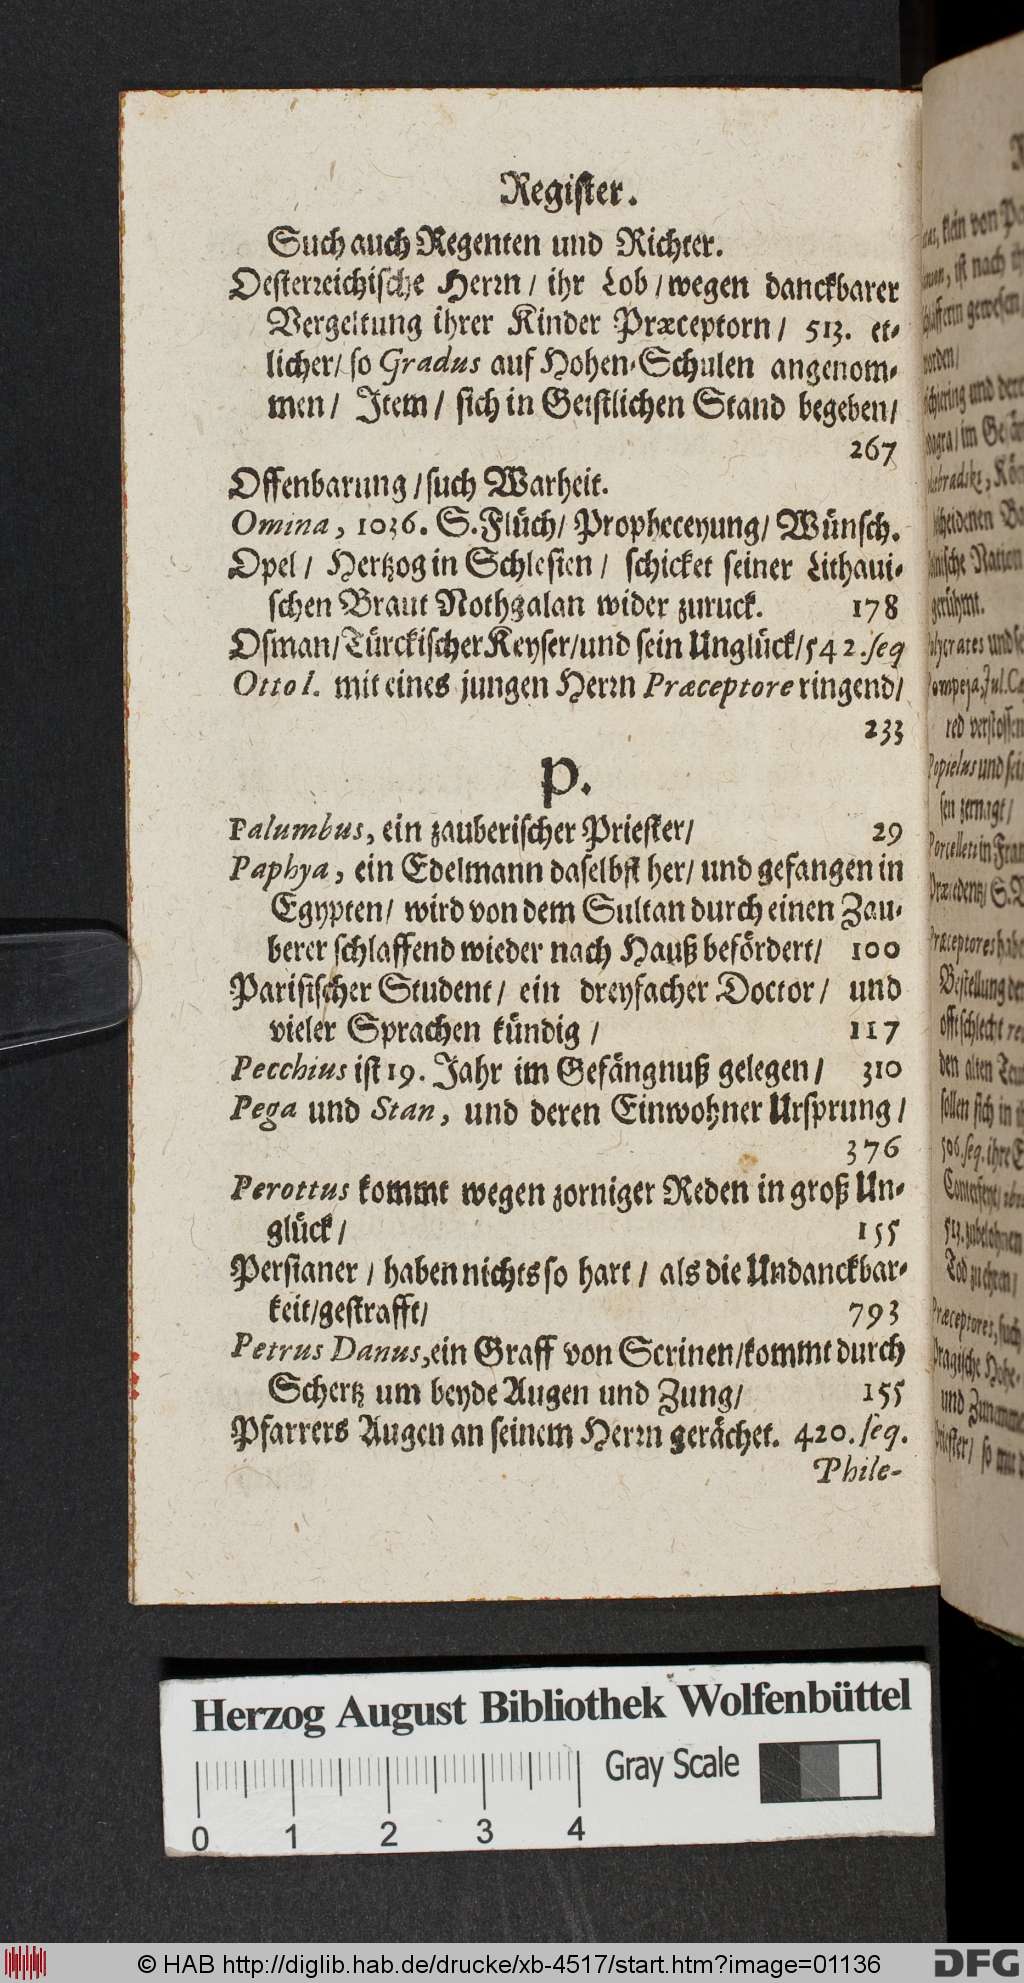 Register.
Such auch Regenten und Richter.
Oesterreichische Herrn / ihr Lob / wegen danckbarer
Vergeltung ihrer Kinder Præceptorn / 513. et-
licher / so Gradus auf Hohen-Schulen angenom-
men / Item / sich in Geistlichen Stand begeben /
267
Offenbarung / such Warheit.
Omina, 1036. S. Flüch / Propheceyung / Wünsch.
Opel / Hertzog in Schlesien / schicket seiner Lithaui-
schen Braut Nothgalan wider zuruck. 178
Osman / Türckischer Keyser / und sein Unglück / 542. seq
Otto I. mit eines jungen Herrn Præceptore ringend /
233
P.
Palumbus, ein zauberischer Priester / 29
Paphya, ein Edelmann daselbst her / und gefangen in
Egypten / wird von dem Sultan durch einen Zau-
berer schlaffend wieder nach Hauß befördert / 100
Parisischer Student / ein dreyfacher Doctor / und
vieler Sprachen kündig / 117
Pecchius ist 19. Jahr im Gefängnuß gelegen / 310
Pega und Stan, und deren Einwohner Ursprung /
376
Perottus kommt wegen zorniger Reden in groß Un-
glück / 155
Persianer / haben nichts so hart / als die Undanckbar-
keit / gestrafft / 793
Petrus Danus, ein Graff von Scrinen / kommt durch
Schertz um beyde Augen und Zung / 155
Pfarrers Augen an seinem Herrn gerächet. 420. seq.
Phile-
Herzog August Bibliothek Wolfenbüttel
Gray Scale
0 1 2 3 4
© HAB http://diglib.hab.de/drucke/xb-4517/start.htm?image=01136
DFG